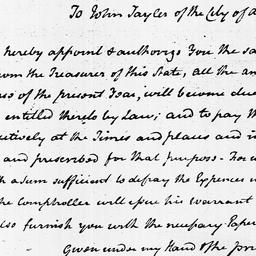 To John Tayler of the City of a
hereby appoint & authorize You the sa
om the Treasurer of this State, all the am
ss of the present Year, will become due
entitled thereto by Law; and to pay th
ctively at the Times and places and in
and prescribed for that purpose - For w
h a sum sufficient to defray the Expences in
he Comptroller will open his warrant
lso furnish you with the necessary Paper
Given under my Hand & the pri